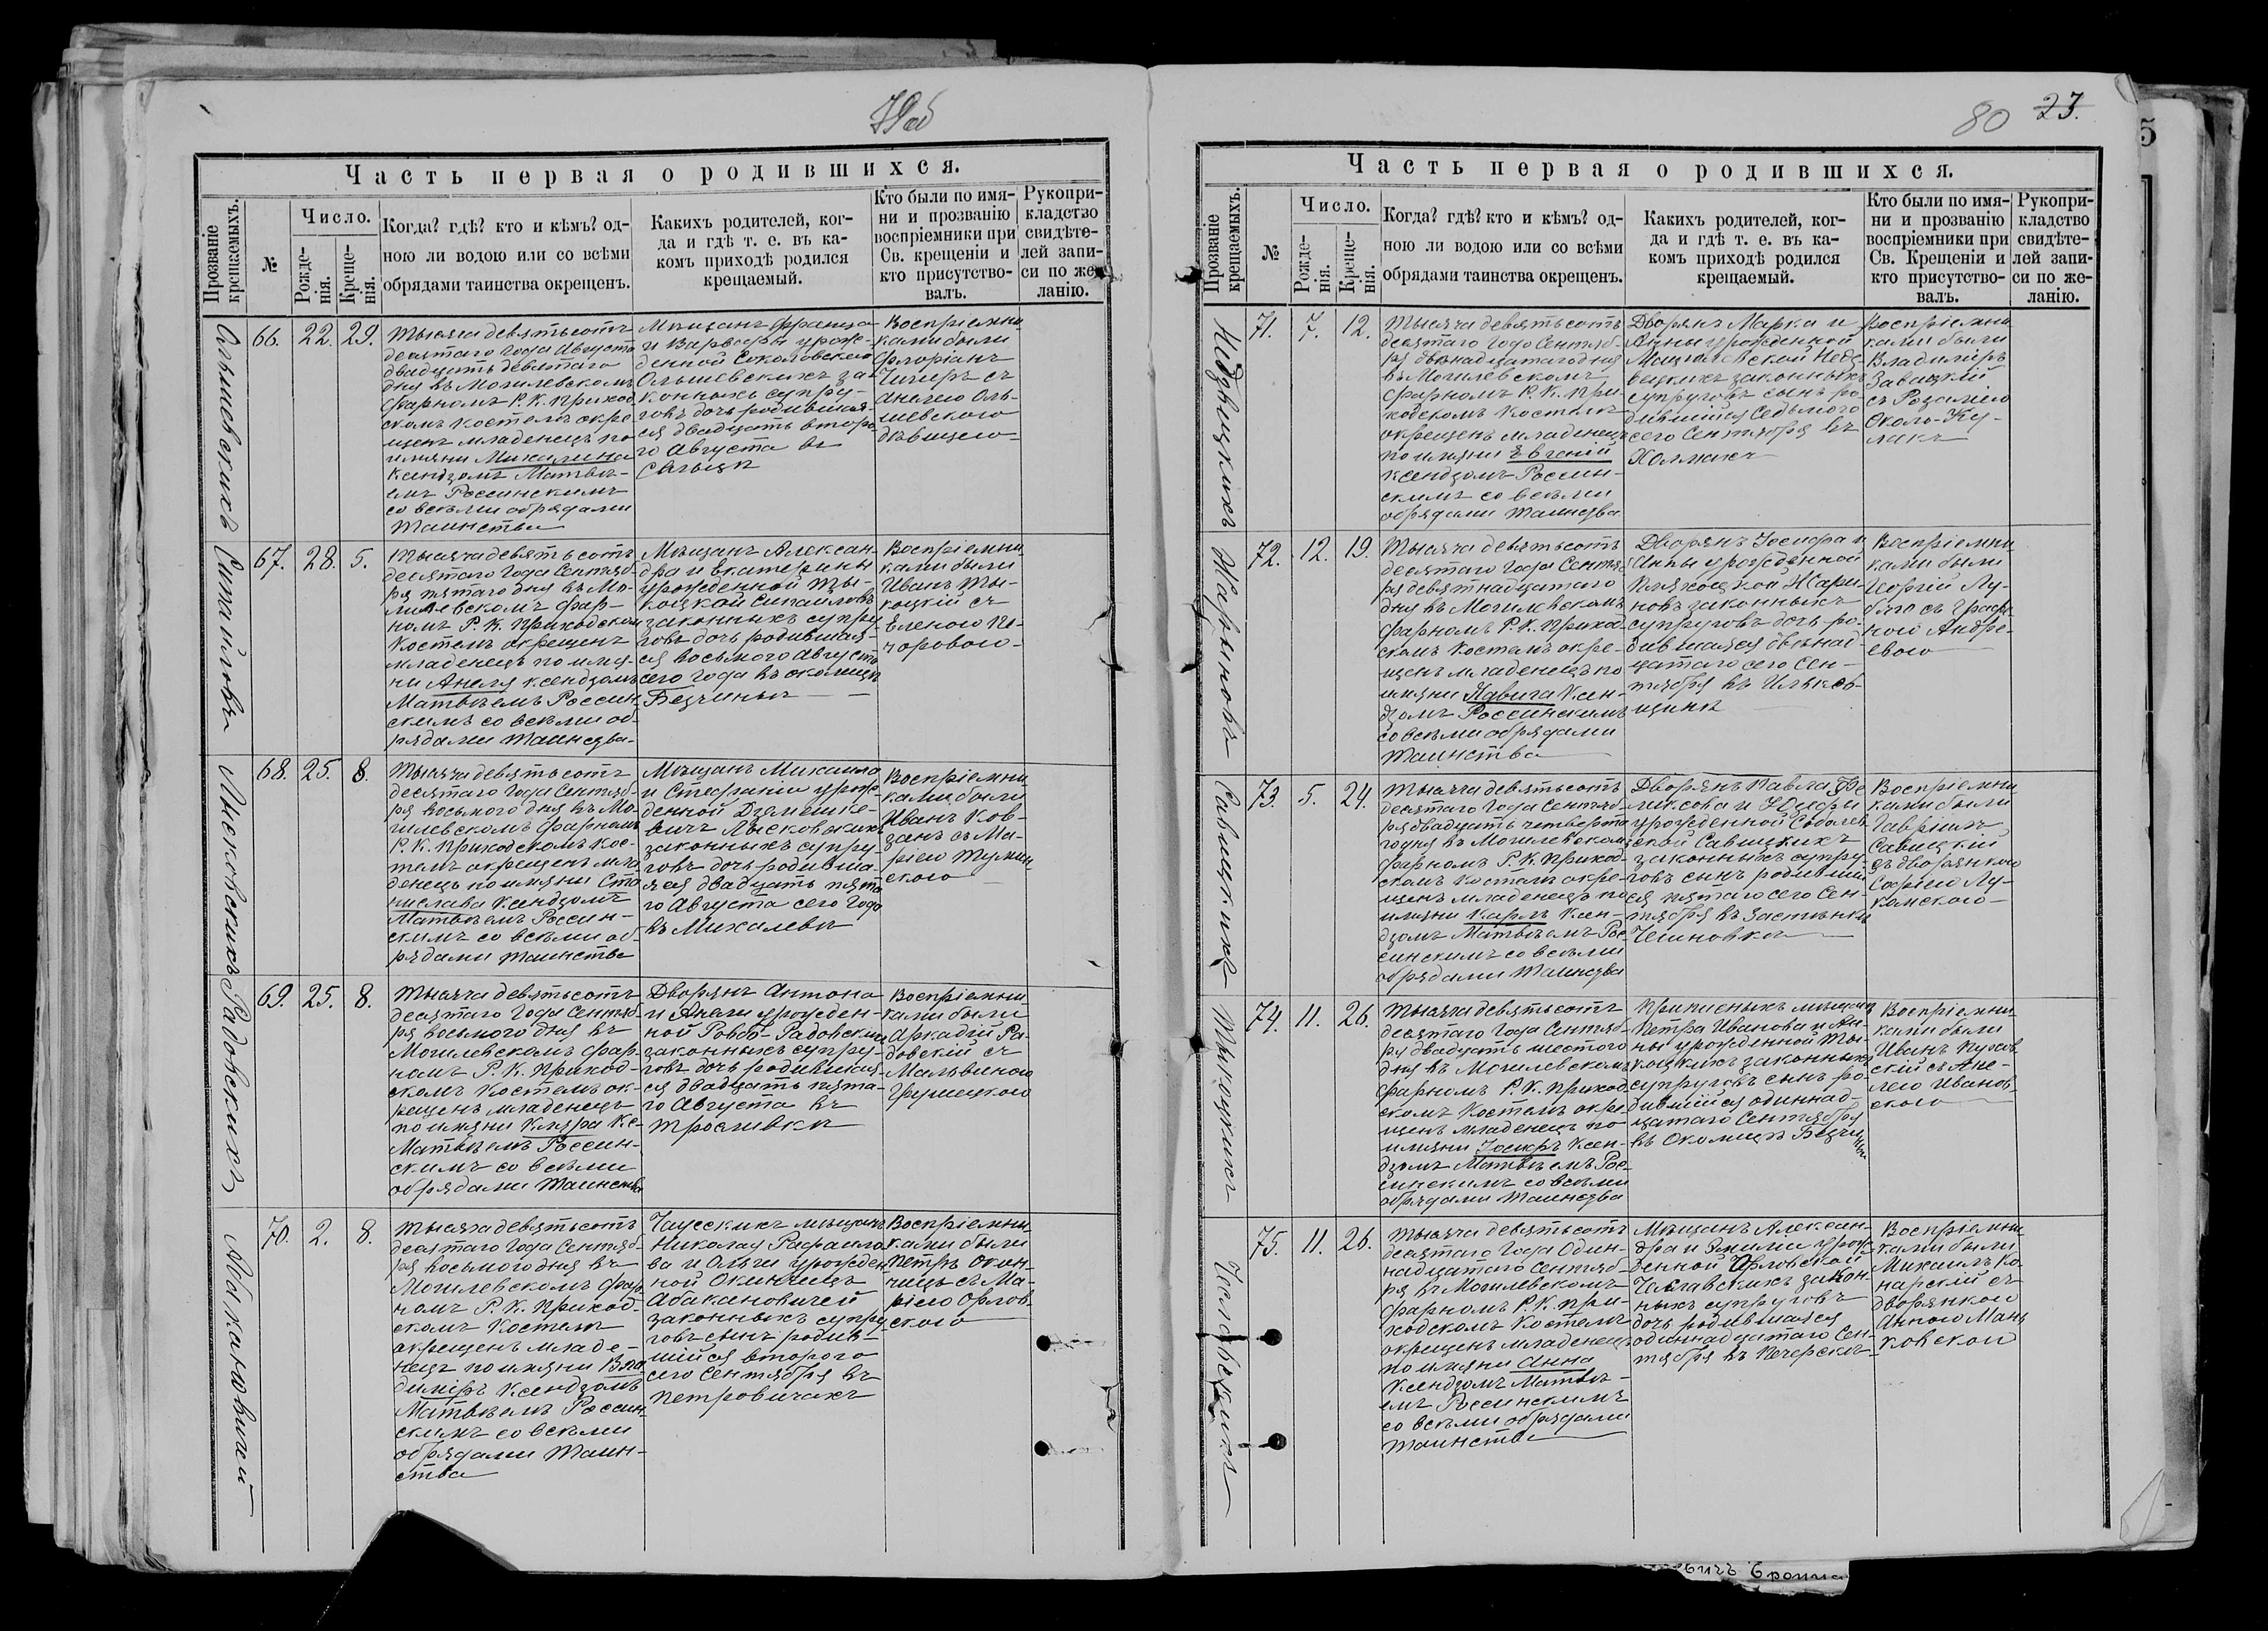 79об
Часть первая о родившихся.
Прозваніе крещаемыхъ.
№
Число.
Рожде-
нія.
Креще-
нія.
Когда? гдѣ? кто и кѣмъ? од-
ною ли водою или со всѣми
обрядами таинства окрещенъ.
Какихъ родителей, ког-
да и гдѣ т. е. въ ка-
комъ приходѣ родился
крещаемый.
Кто были по имя-
ни и прозванію
воспріемники при
Св. крещеніи и
кто присутство-
валъ.
Рукопри-
кладство
свидѣте-
лей запи-
си по же-
ланію.
Ольшевскихъ
66. 22. 29.
Тысяча девятьсотъ
десятаго года Августа
двадцать девятаго
дня въ Могилевскомъ
фарномъ Р. К. приход-
скомъ костелѣ окре-
щенъ младенецъ по
имяни Михалина
ксендзомъ Матвѣ-
емъ Россинскимъ
со всѣми обрядами
таинства
Мѣщанъ Франца
и Варвары урож-
денной Соколовской
Ольшевскихъ за-
конныхъ супру-
говъ дочь родившая-
ся двадцать второ-
го Августа въ
Воспріемни-
ками были
Флоріанъ
съ
Анелею Оль-
шевскою
дѣвицею
Сипайловъ
67. 28. 5.
Тысяча девятьсотъ
десятаго года Сентяб-
ря пятаго дня въ Мо-
гилевскомъ фар-
номъ Р. К. приходском
костелѣ окрещенъ
младенецъ по имя-
ни Анеля ксендзомъ
Матвѣемъ Россин-
скимъ со всѣми об-
рядами таинства
Мѣщанъ Алексан-
дра и Екатерины
урожденной Ты-
коцкой Сипайловъ
законныхъ супру-
говъ дочь родившая-
ся восьмого Августа
сего года въ околицѣ
Безчиньи
Воспріемни-
ками были
Иванъ Ты-
коцкій съ
Еленою По-
чоровою
Лысковскихъ
68. 25. 8.
Тысяча девятьсотъ
десятаго года Сентяб-
ря восьмого дня въ Мо-
гилевскомъ фарномъ
Р. К. приходскомъ кос-
телѣ окрещенъ мла-
денецъ по имяни Ста-
нислава ксендзомъ
Матвѣемъ Россин-
скимъ со всѣми об-
рядами таинства
Мѣщанъ Михаила
и Стефаніи урож-
денной Дземешке-
вичъ Лысковскихъ
законныхъ супру-
говъ дочь родивша-
яся двадцать пята-
го Августа сего года
въ Михалевѣ
Воспріемни-
ками были
Иванъ Ков-
занъ съ Ма-
ріею Тумин-
скою
Радовскихъ
69. 25. 8.
Тысяча девятьсотъ
десятаго года Сентяб-
ря восьмого дня въ
Могилевскомъ фар-
номъ Р. К. приход-
скомъ костелѣ ок-
рещенъ младенецъ
по имяни Кляра Кс.
Матвѣемъ Россин-
скимъ со всѣми
обрядами таинства
Дворянъ Антона
и Анели урожден-
ной Радовскихъ
законныхъ супру-
говъ дочь родившая-
ся двадцать пята-
го Августа въ
Тросливкѣ
Воспріемни-
ками были
Аркадій Ра-
довскій съ
Мальвиною
Грушецкою
Абакановичей
70. 2. 8.
Тысяча девятьсотъ
десятаго года Сентяб-
ря восьмого дня въ
Могилевскомъ фар-
номъ Р. К. приход-
скомъ костелѣ
окрещенъ младе-
нецъ по имяни Вла-
диміръ ксендзомъ
Матвѣемъ Россин-
скимъ со всѣми
обрядами таин-
ства
Чаусскихъ мѣщанъ
Николая Рафаило-
ва и Ольги урожден-
ной Окинчицъ
Абакановичей
законныхъ супру-
говъ сынъ родив-
шійся второго
сего Сентября въ
Петровичахъ
Воспріемни-
ками были
Петръ Окин-
чицъ съ Ма-
ріею Орлов-
скою
80 23.
Часть первая о родившихся.
Прозваніе крещаемыхъ.
№
Число.
Рожде-
нія.
Креще-
нія.
Когда? гдѣ? кто и кѣмъ? од-
ною ли водою или со всѣми
обрядами таинства окрещенъ.
Какихъ родителей, ког-
да и гдѣ т. е. въ ка-
комъ приходѣ родился
крещаемый.
Кто были по имя-
ни и прозванію
воспріемники при
Св. Крещеніи и
кто присутство-
валъ.
Рукопри-
кладство
свидѣте-
лей запи-
си по же-
ланію.
Недзвецкихъ
71. 7. 12.
Тысяча девятьсотъ
десятаго года Сентяб-
ря двѣнадцатаго дня
въ Могилевскомъ
фарномъ Р. К. при-
ходскомъ костелѣ
окрещенъ младенецъ
по имяни Евгеній
ксендзомъ Россин-
скимъ со всѣми
обрядами таинства
Дворянъ Марка и
Анны урожденной
Недз-
вецкихъ законныхъ
супруговъ сынъ ро-
дившійся седьмого
сего Сентября въ
Холмахъ
Воспріемни-
ками были
Владиміръ
Завацкій
съ Розаліею
Около-Ку-
лакъ
Жариновъ
72. 12. 19.
Тысяча девятьсотъ
десятаго года Сентяб-
ря девятнадцатаго
дня въ Могилевскомъ
фарномъ Р. К. приход-
скомъ костелѣ окре-
щенъ младенецъ по
имяни Ядвига ксен-
дзомъ Россинскимъ
со всѣми обрядами
таинства
Дворянъ Іосифа и
Анны урожденной
Жари-
новъ законныхъ
супруговъ дочь ро-
дившаяся двѣнад-
цатаго сего Сен-
тября въ Ильков-
щинѣ
Воспріемни-
ками были
Георгій Лу-
бло съ
Андре-
евою
Савицкихъ
73. 5. 24.
Тысяча девятьсотъ
десятаго года Сентяб-
ря двадцать четверта-
го дня въ Могилевскомъ
фарномъ Р. К. приход-
скомъ костелѣ окре-
щенъ младенецъ по
имяни Карлъ ксен-
дзомъ Матвѣемъ Рос-
синскимъ со всѣми
обрядами таинства
Дворянъ Павла Фе-
ликсова и Юзефы
урожденной Соболев-
ской Савицкихъ
законныхъ супру-
говъ сынъ родившій-
ся пятаго сего Сен-
тября въ застѣнкѣ
Чесновка
Воспріемни-
ками были
Гавріилъ
Савицкій
съ дворянкою
Софіею Лу-
комскою
Тыкоцкихъ
74. 11. 26.
Тысяча девятьсотъ
десятаго года Сентяб-
ря двадцать шестого
дня въ Могилевскомъ
фарномъ Р. К. приход-
скомъ костелѣ окре-
щенъ младенецъ по
имяни Іосифъ ксен-
дзомъ Матвѣемъ Рос-
синскимъ со всѣми
обрядами таинства
Приписныхъ мѣщанъ
Петра Иванова и Ан-
ны урожденной Ты-
коцкихъ законныхъ
супруговъ сынъ ро-
дившійся одиннад-
цатаго Сентября
въ околицѣ Безчиньи
Воспріемни-
ками были
Иванъ Пухов-
скій съ Ане-
лею Иванов-
скою
Чеславскихъ
75. 11. 26.
Тысяча девятьсотъ
десятаго года Один-
надцатаго Сентяб-
ря въ Могилевскомъ
фарномъ Р. К. при-
ходскомъ костелѣ
окрещенъ младенецъ
по имяни Анна
ксендзомъ Матвѣ-
емъ Россинскимъ
со всѣми обрядами
таинства
Мѣщанъ Алексан-
дра и Эмиліи урож-
денной Орловской
Чеславскихъ закон-
ныхъ супруговъ
дочь родившаяся
одиннадцатаго Сен-
тября въ Печерскѣ
Воспріемни-
ками были
Михаилъ Ко-
нарскій съ
дворянкою
Анною Мань-
ковской